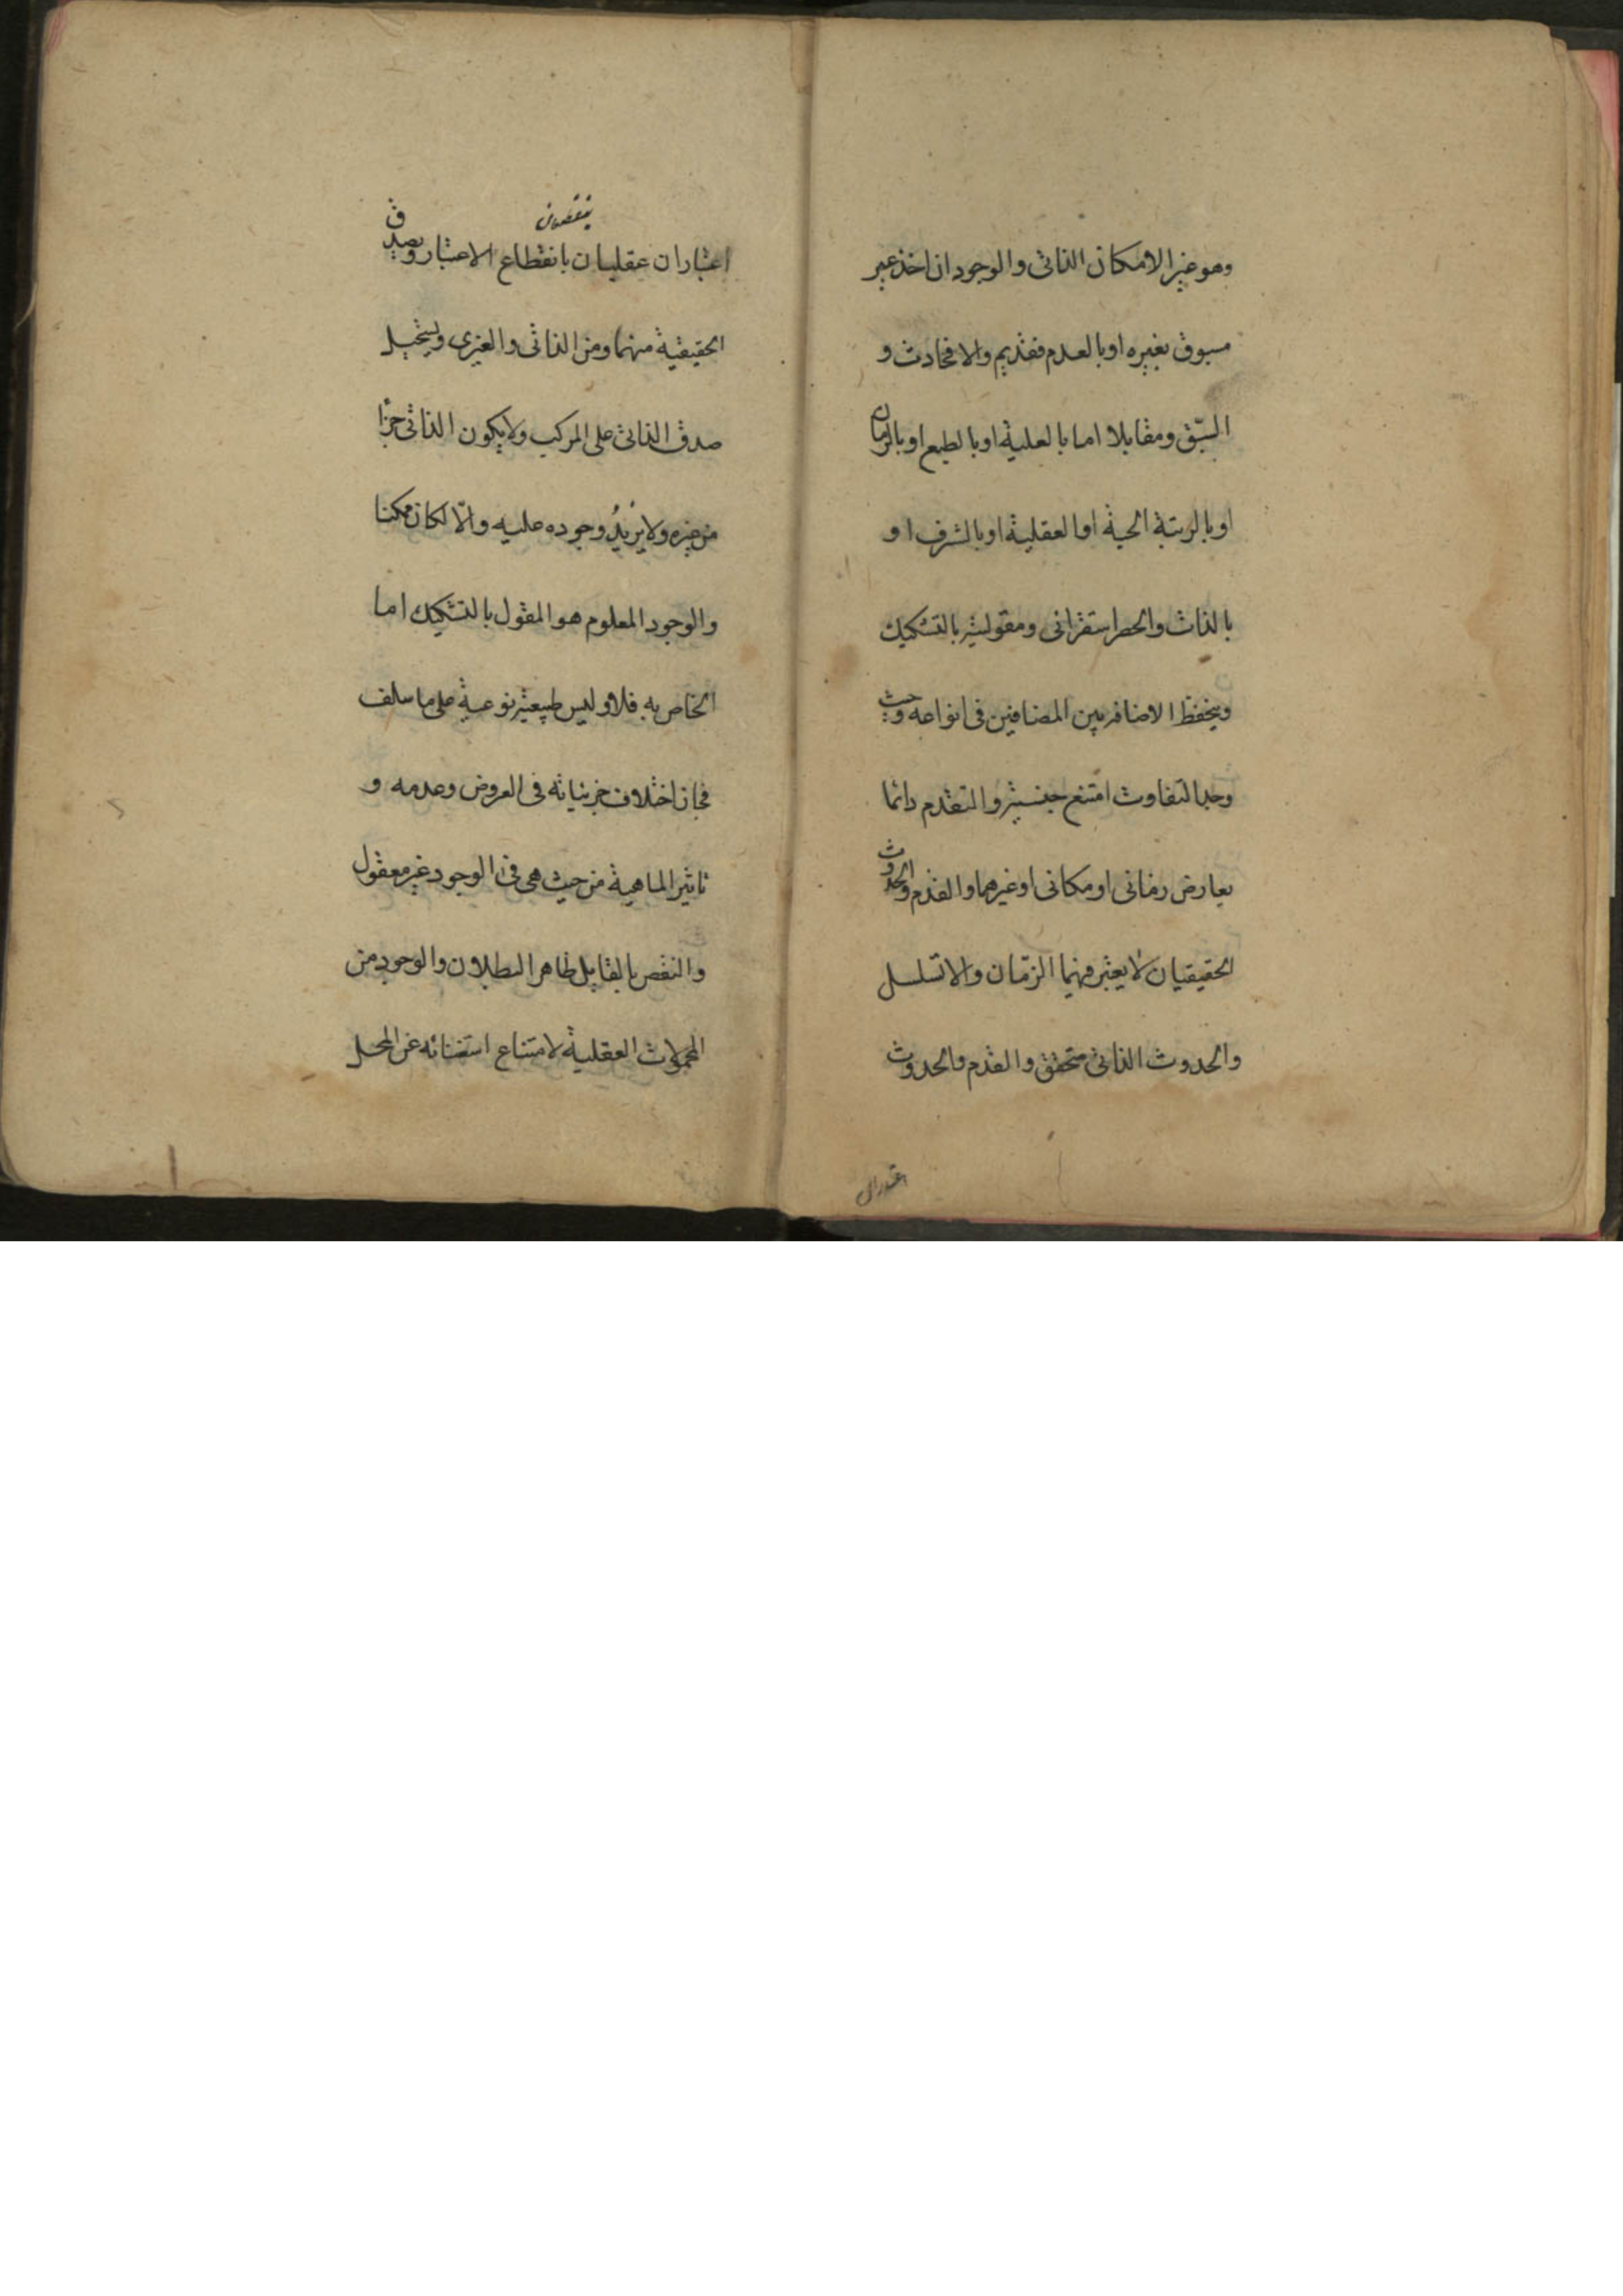 وهو غير الامكان الذاتى والوجود ان اخذ غير
مسبوق بغيره او بالعدم فقديم والا فحادث و
السبق ومقابلاه اما بالعلية او بالطبع او بالزمان
او بالرتبة الحسية او العقلية او بالشرف او
بالذات والحصر استقرائى ومقوليته بالتشكيك
وينحفظ الاضافة بين المضافين فى انواعه وحيث
وجد التفاوت امتنع جنسيته والتقدم دائما
بعارض زمانى او مكانى او غيرهما والقدم والحدوث
الحقيقيان لا يعتبر فيهما الزمان والا تسلسل
والحدوث الذاتى متحقق والقدم والحدوث
اعتباران
ينقطعان
اعتباران عقليان بانقطاع الاعتبار وتصدق
الحقيقية منهما ومن الذاتى والغيرى ويستحيل
صدق الذاتى على المركب ولا يكون الذاتى جزأ
من غيره ولا يزيد وجوده عليه والّا لكان ممكنا
والوجود المعلوم هو المقول بالتشكيك اما
الخاص به فلا وليس طبيعة نوعية على ما سلف
فجاز اختلاف جزئياته فى العروض وعدمه و
تاثير الماهية من حيث هى فى الوجود غير معقول
والنقض بالقابل ظاهر البطلان والوجود من
المحمولات العقلية لامتناع استغنائه عن المحل